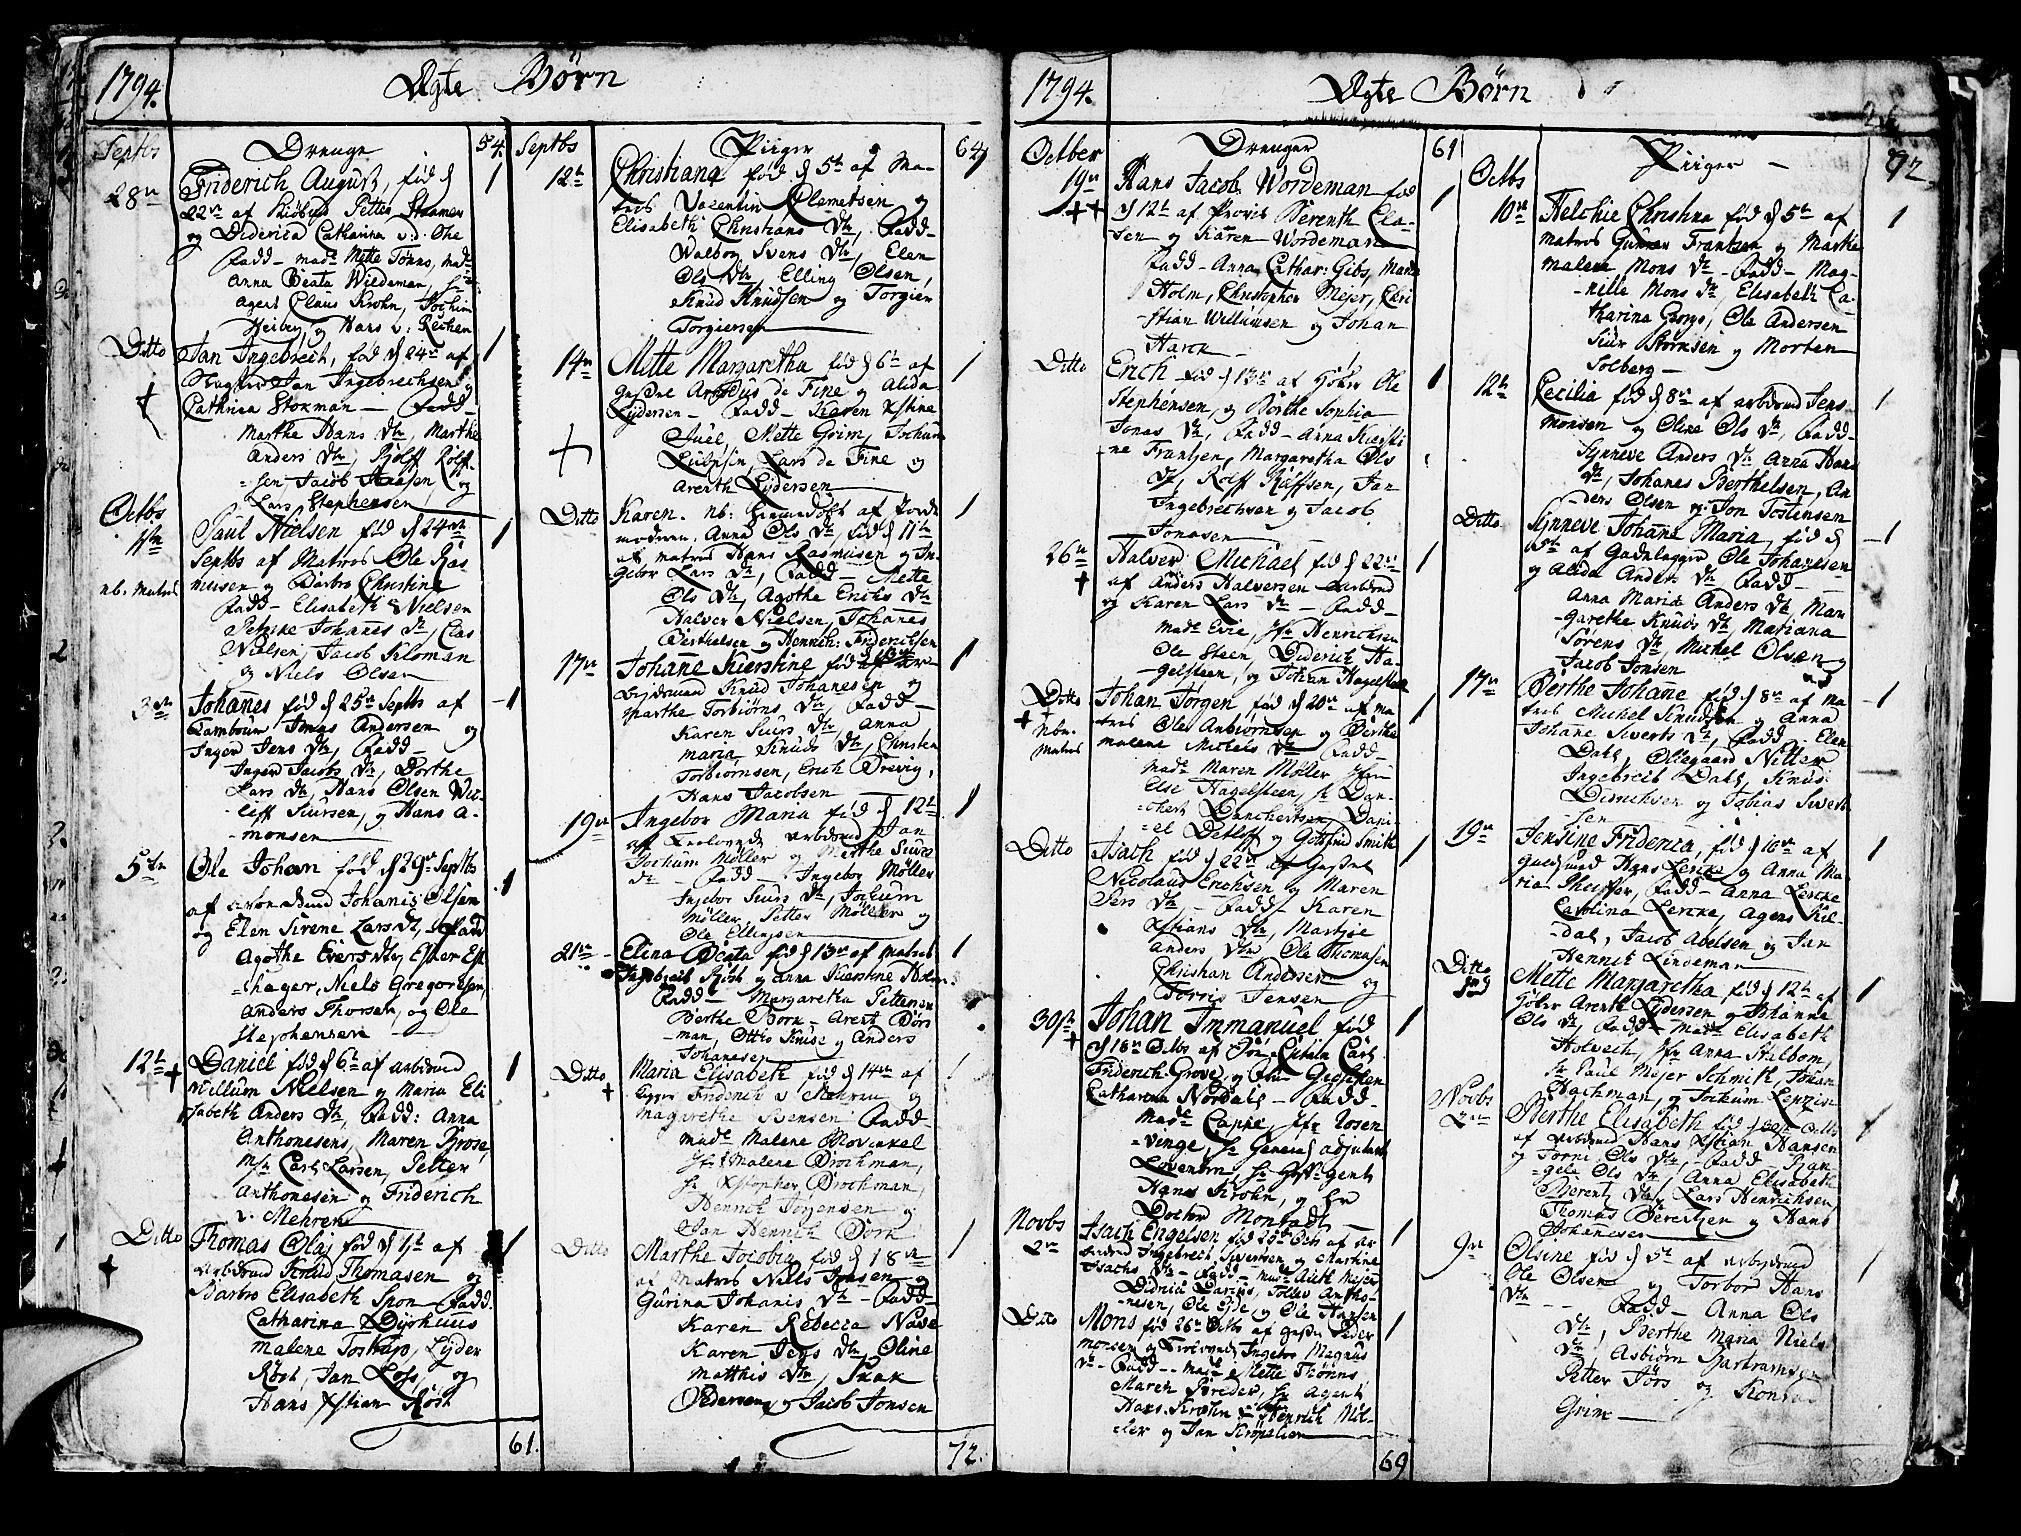 1794. Ægte Børn
Septbs Drenge 54.
28de Friderich August, fød d 1
22de af Kiøbmd Petter Stramer
og Diderica Catharina v.d. Ohe
Fadd— madme Mette Tønnes, madme
Anna Beata Wideman, hr
Agent Claus Krohn, Jochim
Heiberg og Hans v: Rechen
Ditto Jan Ingebrect, fød d 24de af 1
Jan Ingebrechsen og
Cathrina Stokman — Fadd—
Marthe Hans Dtr, Marthe
Anders Dtr, Rolff Rolff-
sen, Jacob Hansen, og
Lars Stephensen
Octbs
1ste Paul Nielsen fød d 24de 1
Septbs af Matros Ole Ras-
nb. Matros musen og Barbro Christine
Fadd— Elisabeth Nielsen
Petrike Johannes Dtr, Clas
Nielsen, Jacob Kiloman
og Niels Olsen
3de Johannes fød d 25de Septbs af 1
Tambour Jonas Andersen og
Inger Jens Dtr, Fadd—
Inger Jacobs Dtr, Dorthe
Lars Dtr, Hans Olsen Wul-
liff Siursen, og Hans A-
monsen
5te Ole Johan fød d 29de Septbs
af Johanis Olsen 1
og Elen Sirene Lars Dtr, Fadd
Agothe Evers Dtr, Ester Est-
hager, Niels Gregorisen,
Anders Thorsen, og Ole
Stephensen
12te Daniel fød d 6te af arbdmd 1
Willum Nielsen og Maria Eli
sabeth Anders Dtr, Fadd: Anna
Anthonesens, Maren Grose,
Mr Carl Larsen, Petter
Anthonesen og Friderich
v. Mehren
Ditto Thomas Olaj fød d 1ste af 1
arbdmd Knud Thomasen og
Barbro Elisabeth Spon Fadd.
Catharina Dyrhuus
Malene Toskup, Lyder
Röst, Jan Loss, og
Hans Xstian Röst
61.
Septbs Piiger 64
12te Christiana fød d 5te af Ma-
tros Valentin Clemetsen og
Elisabeth Christians Dtr, Fadd—
Walborg Svens Dtr, Elen
Ols Dtr, Elling Olsen,
Knud Knudsen og Torgier
Torgiersen
14de Mette Margaretha fød d 6te af 1
de Fine og Alida
Lydersen— Fadd— Karen Xstine
Juel, Mette Grim, Jochum
Lars de Fine og
Arenth Lydersen
Ditto Karen. nb: hiemedøbt af Jorde 1
moderen, Anna Ols Dtr fød d 11te
af matros Hans Rasmusen og In-
gebor Lars Dtr, Fadd— Mette
Ols Dtr, Agothe Erichs Dtr
Halver Nielsen, Johannes
Berthelsen og Hennrich: Friderichsen
17de Johanne Kierstine fød d 1
Knud Johanesen og
Marthe Torbiørns Dtr, Fadd—
Karen Siurs Dtr, Anna
Maria Knuds Dtr, Christen
Torbiørnsen, Erich Drevig,
Hans Jacobsen
19de Ingebor Maria fød d 12te 1
af Arbdmd Jan
Jochum Möller og Marthe Siurs
Dtr — Fadd— Ingebor Möller
Ingebor Siurs Dtr, Jochum
Möller, Petter Möller og
Ole Ellingsen
21de Elina Beata fød d 13de af Matros 1
Ingebrect Röst og Anna Kierstine Holm
Fadd— Margaretha Pettersen
Berthe Bork, Arent Börs
man, Otto Kruse og Anders
Johanesen
Ditto Maria Elisabeth fød d 14de af 1
Friderich v Mehren og
Magrethe Bensen— Fadd—
mad: Malene Movinkel
Jfr Malene Drochman,
hr Xstopher Drochman,
Hennrich Jörgensen og
Jan Henrich Bork
Ditto Marthe Jocobia fød d 18de 1
af Matros Niels Jensen og
Gurina Johanis Dtr— Fadd—
Karen Rebecca Nese
Karen Jens Dtr, Oline
Matthis Dtr, Isak
Pedersen og Jacob Jonsen
72.
1794. Ægte Børn
Octber Drenger 61
19de Hans Jacob Wordeman fød 1
d 12te af Provis Berenth Cla-
sen og Karen Wordeman
Fadd— Anna Cathar: Gibs, Maren
Holm, Christopher Meier, Chri
stian Willumsen og Johan
Harck
Ditto Erich fød d 13de af Giörtler Ole 1
Stephensen, og Börthe Sophia
Jonas Dtr, Fadd— Anna Kiersti
ne Frantzen, Margaretha Ols
Dtr, Rolff Rolffsen, Jan
Ingebrechsen og Jacob
Jonasen
26de Halver Michael fød d 22de 1
af Anders Halversen arbdmd
og Karen Lars Dtr — Fadd—
Madme Evie, Jfr Henrichsen
Ole Steen, Diderich Ha-
gelsteen, og Johan Hagelsteen
Ditto Johan Jörgen fød d 20de af Ma 1
tros Ole Anbiørnsen og Berthe
nb. Matros Malene Michels Dtr Fadd—
Madme Maren Møller Jfr
Else Hagelsteen, hr Dan-
chert Danchertsen, Dani-
el Detloff og Gottfrid Smith
Ditto Isach fød d 22de af 1
Nicolaus Erichsen og Maren
Pers Dtr — Fadd— Karen
Xstians Dtr, Marthe
Anders Dtr, Ole Thomasen
Christian Andersen og
Torris Jensen
30te Johan Immanuel fød 1
d 18de Octbs af Hr: Capitain Carl
Friderich Grove, og Fru Geschken
Catharina Nordahl— Fadd—
Madme Cappe, Jfr Rosen
vinge, hr General adjutant
Lövenörn, hr Agent
Hans Krohn, og hr
Doctor Montadt
Novbs
2de Isach Engelsen fød 25de Octbs af ar 1
beidmd Ingebrecht Siversen og Martine
Isachs Dtr— Fadd— madme Aleth Meier
Didricka Darius, Tolles Antho-
nesen, Ole Eide, og Ole Hansen
Ditto Mons fød 26de Octbs af Peder 1
Monsen og Ingebor Magnus
Dtr— Fadd— Madme Mette Thönns
Maren Breder, hr Agent
Hans Krohn Henrich Mil-
ler og Jan Kröpelien
69
Octbs Piiger 72
10de Helchie Christina fød d 5te af 1
Matros Gunnar Frantzen og Marthe
Malena Mons Dtr — Fadd— Mag-
nille Mons Dtr, Elisabeth Ca-
tharina Georgs, Ole Andersen
Siur Stormsen og Morten
Solberg—
12te Cecilia fød d 8de af arbdmd Jens 1
Monsen og Oline Ols Dtr, Fadd—
Synneve Anders Dtr Anna Hans
Dtr, Johanes Berthelsen, An-
ders Olsen og Jon Tostensen
Ditto Synneve Johanne Maria, fød d 1
5te af Gadelegger Ole Johannesen
og Alida Anders Dtr, Fadd—
Anna Maria Anders Dtr, Mar
garethe Knuds Dtr, Mariana
Sørens Dtr, Michel Olsen og
Jacob Jonsen
17de Berthe Johanne fød d 8de af Ma 1
tros Michel Knudsen og Anna
Johane Siverts Dtr, Fadd— Elen
Dahl, Ollegaard Nitter
Ingebrect Dahl, Knud
Didrichsen og Tobias Sivert-
sen
19de Jensine Friderica, fød d 10de af 1
Hans Lercke og Anna Ma-
ria Fadd— Anna Lercke
Carolina Lercke, Agens Kil-
dal, Jacob Abelsen og Jan
Hennrick Lindeman
Ditto Mette Margaretha, fød d 12te af 1
Giörtler Arenth Lydersen og Johanna
Ols Dtr, Fadd— Madme Elisabeth
Holvech, Jfr Anna Stilbom,
hr Paul Meier Schmith, Johan
Hachman, og Jochum Lepzin
Novbs
2de Berthe Elisabeth fød d 30te Octbs 1
af arbdmd Hans Xstian Hansen
og Torni Ols Dtr, Fadd Ran-
gele Ols Dtr, Anna Elisabeth
Berentz Dtr, Lars Henrichsen
Thomas Berentzen og Hans
Johannesen
9de Olsine fød d 5te af arbeydsmd 1
Ole Olsen og Torbor Hans
Dtr — Fadd— Anna Ols
Dtr, Berthe Maria Niels
Dtr, Asbiørn Bartramsen
Petter Jörs og Konrad
Grim